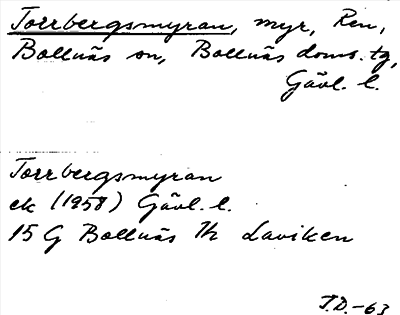 Torrbergsmyran, myr, Ren,
Bollnäs sn, Bollnäs doms. tg,
Gävl. l.
Torrbergsmyran
ek (1958) Gävl. l.
15 G Bollnäs 1h Laviken
T.D.-63